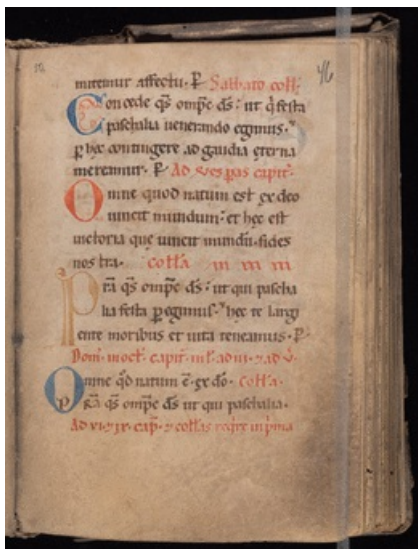 46
mittemur affectu. P. Sabbato coll.
Concede qs omīpc ds: ut q̄ festa
paschalia uenerando egimus.
p hęc contingere ad gaudia ęterna
mereamur. P. Ad uespas capit.
Omne quod natum est ex deo
uincit mundum: et hęc est
uictoria quę uincit mundū. fides
nostra. coll̄a
Prą qs omīpc ds: ut qui pascha
lia festa pegimus. hęc te largi
ente moribus et uita teneamus. P.
Domī. in oct. capit.
Omne qd natum ē. ex dō. coll̄a.
Pr̄a qs omīpc ds ut qui paschalia.
Ad vi. 7 ix. cap. 7 coll̄as reqre in pma